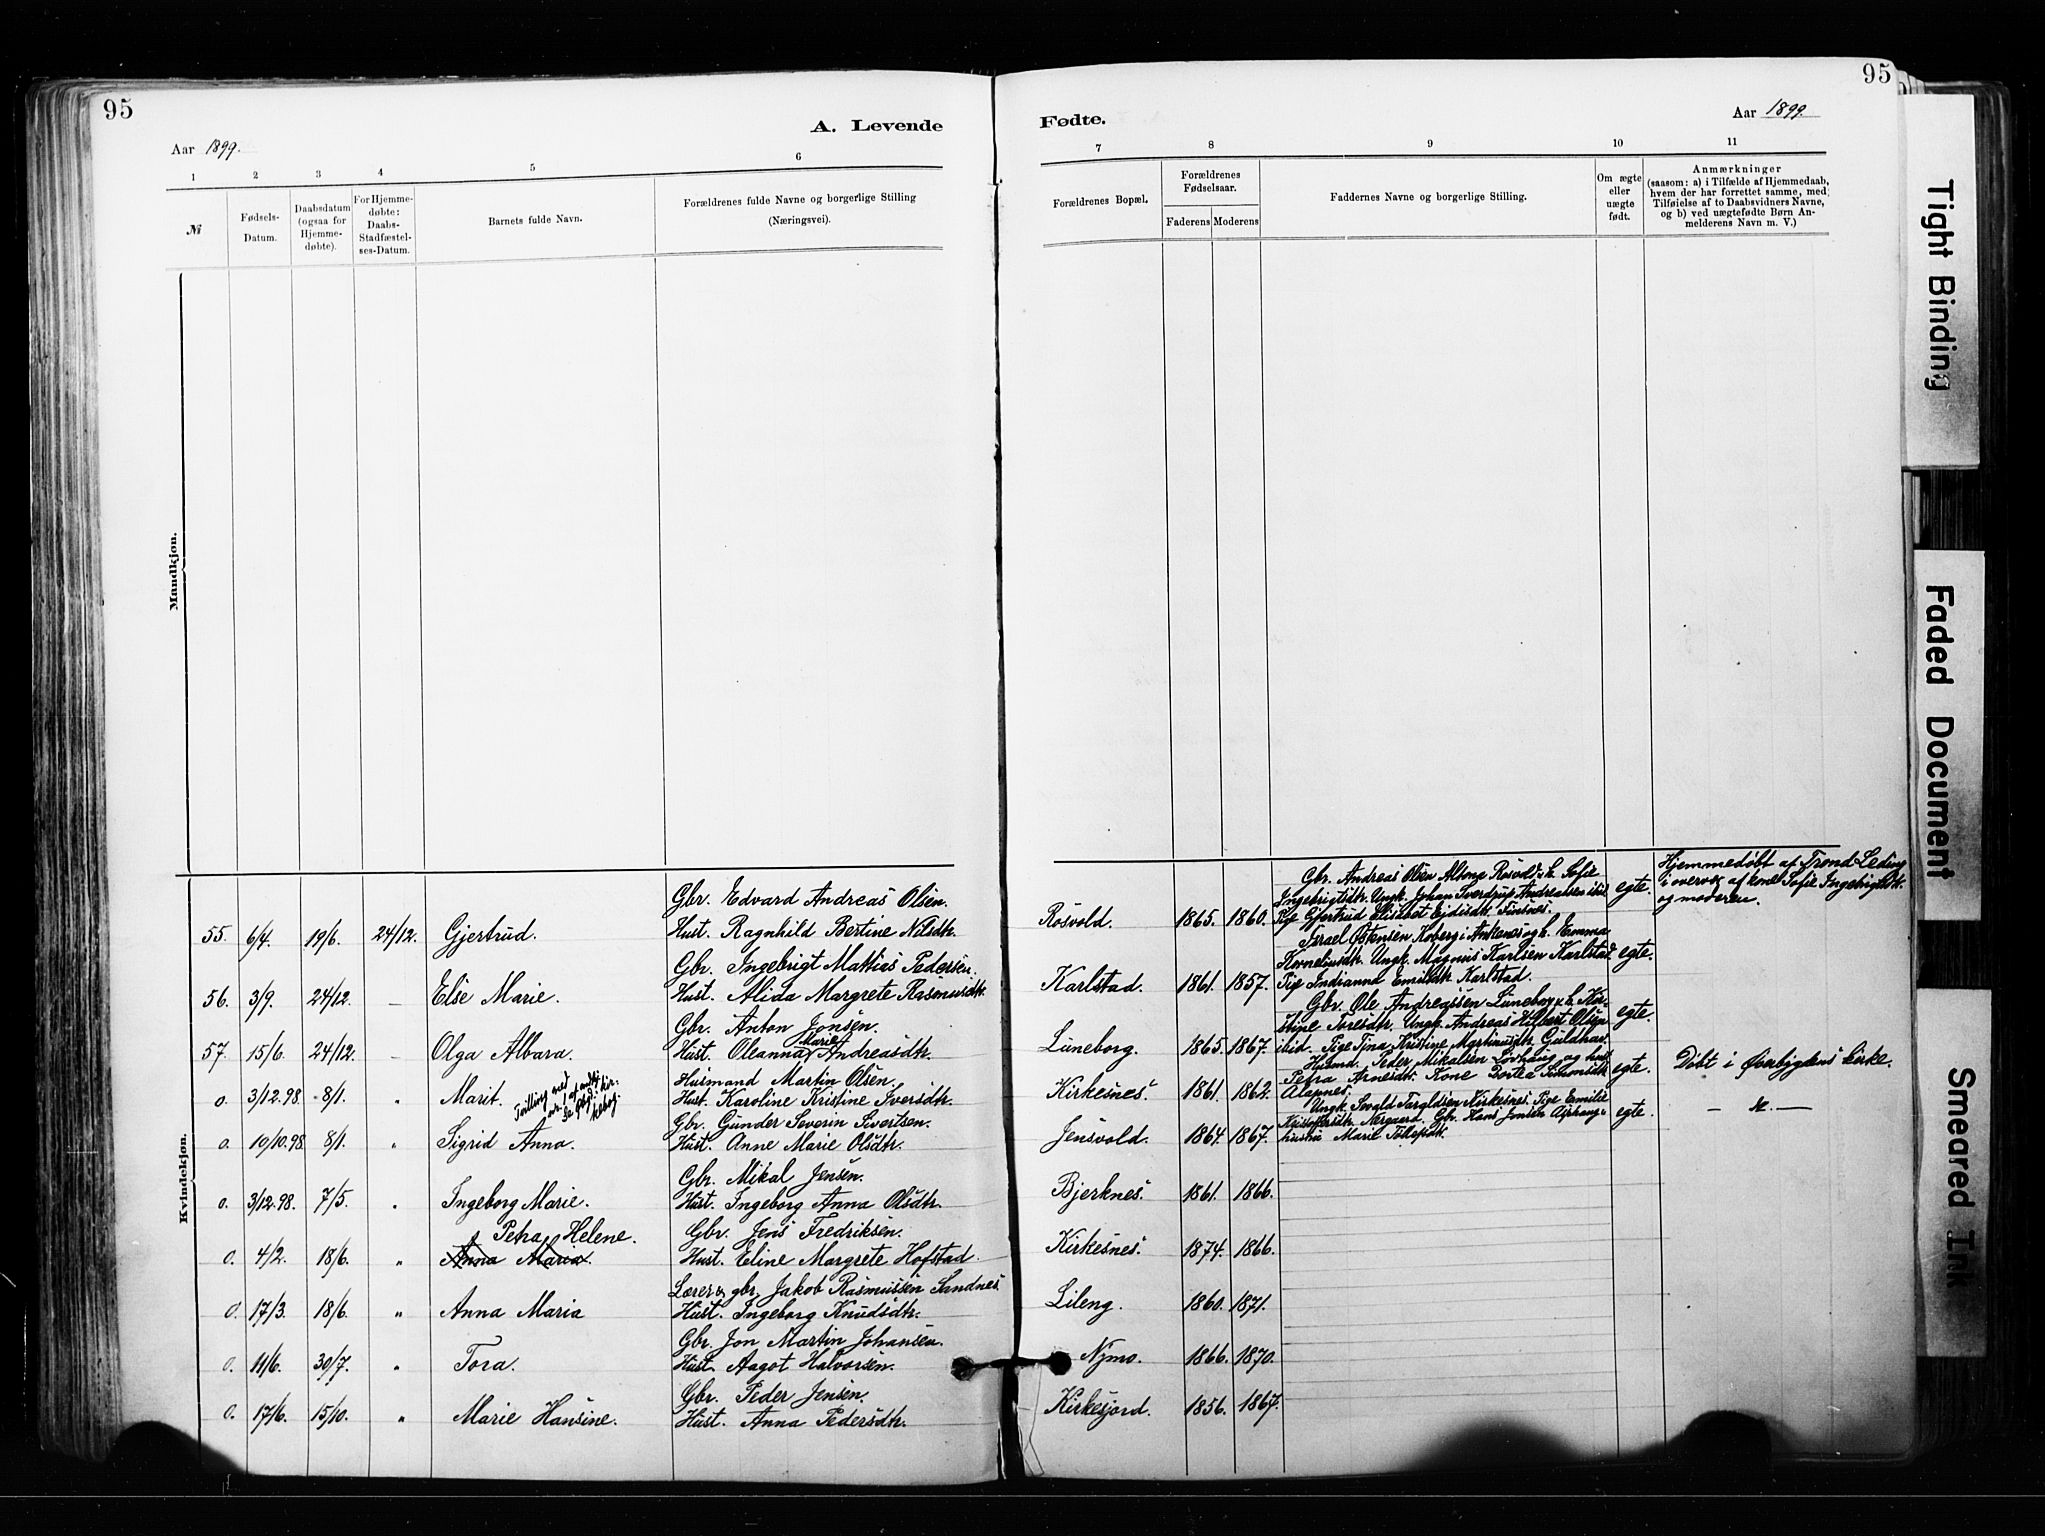 95
A. Levende
Aar 1899.
1 2 3 4 5 6
№
Fødsels-
Datum.
Daabsdatum
(ogsaa for
Hjemme-
døbte).
For Hjemme-
døbte:
Daabs-
Stadfæstel-
ses-Datum.
Barnets fulde Navn.
Forældrenes fulde Navne og borgerlige Stilling
(Næringsvei).
Mandkjøn.
Kvindekjøn.
Gbr. Edvard Andreas Olsen.
55. 6/4. 19/6. 24/12. Gjertrud. Hust. Ragnhild Bertine Nilsdtr.
Gbr. Ingebrigt Mattias Pedersen.
56. 3/9. 24/12. — Else Marie. Hust. Alida Margrete Rasmusdtr.
Gbr. Anton Jonsen.
Marie
57. 15/6. 24/12. — Olga Albara. Hust. Oleanna Andreasdtr.
Husmand Martin Olsen.
o. 3/12.98. 8/1. " Marit. Tvilling med Hust. Karoline Kristine Iversdtr.
Gbr. Gunder Severin Sivertsen.
o. 10/10.98 8/1. " Sigrid Anna. Hust. Anne Marie Olsdtr.
Gbr. Mikal Jensen.
o. 3/12.98. 7/5. " Ingeborg Marie. Hust. Ingeborg Anna Olsdtr.
Petra Helene. Gbr. Jens Fredriksen.
o. 4/2. 18/6. " Anna Maria. Hust. Eline Margrete Hofstad.
Lærer & gbr. Jakob Rasmussen Sandnes
o. 17/3. 18/6. " Anna Maria Hust. Ingeborg Knudsdtr.
Gbr. Jon Martin Johansen.
o. 11/6. 30/7. " Tora. Hust. Aagot Halvorsen.
Gbr. Peder Jensen.
o. 17/6. 15/10. " Marie Hansine. Hust. Anna Pedersdtr.
95
Fødte.
Aar 1899.
7 8 9 10 11
Forældrenes Bopæl.
Forældrenes
Fødselsaar.
Faderens Moderens
Faddernes Navne og borgerlige Stilling.
Om ægte
eller
uægte
født.
Anmærkninger
(saasom: a) i Tilfælde af Hjemmedaab,
hvem der har forrettet samme, med
Tilføielse af to Daabsvidners Navne,
og b) ved uægtefødte Børn An-
melderens Navn m. V.)
Rosvold. 1865. 1860.
Gbr. Andreas Olsen Rosvold & h. Sofie
Ingebrigtsdtr. Ungk. Johan Sverdrup Andreassen ibid
Pige Gjertrud Elisabet Finsnes.
egte.
Hjemmedøbt af Trond Leding
i overvær af kone Sofie Ingebrigtsdtr.
og moderen.
Karlstad. 1861. 1857.
Israel Ostensen Koberg i Ankenes og h. Emma
Korneliusdtr. Ungk. Magnus Karlsen Karlstad
Pige Indianna Emilsdtr. Karlstad.
egte.
Luneborg. 1865. 1867.
Gbr. Ole Andreassen Luneborg & h. Kir-
stine Toresdtr. Ungk. Andreas Hilbert Olsen
ibid. Pige Tina Kristine Martinusdtr. Guldhav
egte.
Kirkesnes. 1861. 1862.
Husmd. Peder Mikalsen Løvhaug og hust.
Petra Arnesdtr. Kone Dortea Simonsdtr
Alapnes.
egte.
Døbt i Øverbygdens kirke.
Jensvold. 1864. 1867.
Ungk. Kirkesnes. Pige Emilie
Kristoffersdtr. Nergaard. Gbr. Hans Jensen
hustru Marie Tollefsdtr.
egte.
Bjerknes. 1861. 1866.
Kirkesnes. 1874. 1866.
Lileng. 1860. 1871.
Nymo. 1866. 1870.
Kirkesjord. 1856. 1867.
Tight Binding
Faded Document
Smeared Ink